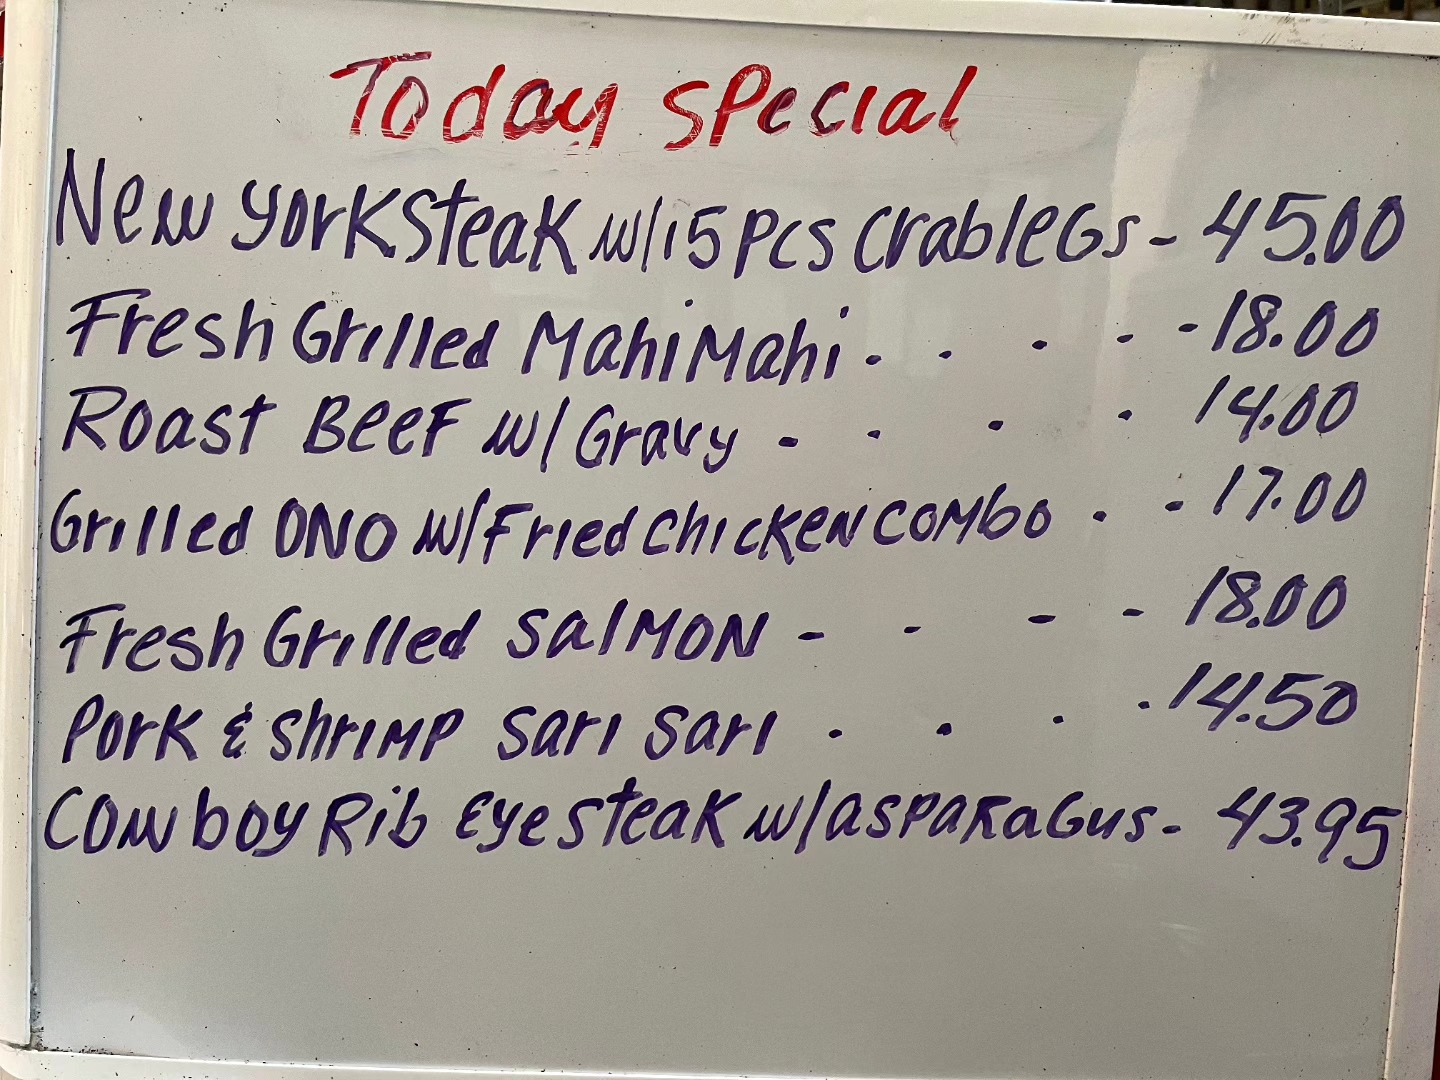 Today Special
New York Steak w/ 15 pcs Crab legs - 45.00
Fresh Grilled Mahi Mahi - - - - - 18.00
Roast Beef w/ Gravy - - - - 14.00
Grilled ONO w/ Fried Chicken Combo - - 17.00
Fresh Grilled Salmon - - - - 18.00
Pork & Shrimp Sari Sari - - - - 14.50
Cowboy Rib Eye Steak w/ asparagus - 43.95